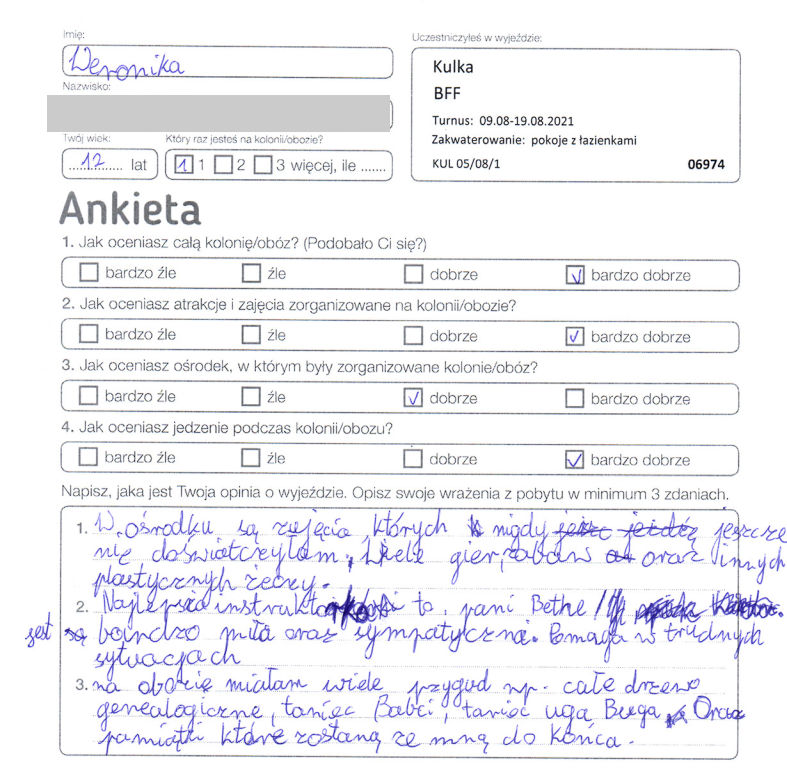 Imię:
Weronika
Nazwisko:
Twój wiek:
12 lat
Który raz jesteś na kolonii/obozie?
1 1 2 3 więcej, ile .......
Uczestniczyłeś w wyjeździe:
Kulka
BFF
Turnus: 09.08-19.08.2021
Zakwaterowanie: pokoje z łazienkami
KUL 05/08/1 06974
Ankieta
1. Jak oceniasz całą kolonię/obóz? (Podobało Ci się?)
bardzo źle źle dobrze bardzo dobrze
2. Jak oceniasz atrakcje i zajęcia zorganizowane na kolonii/obozie?
bardzo źle źle dobrze bardzo dobrze
3. Jak oceniasz ośrodek, w którym były zorganizowane kolonie/obóz?
bardzo źle źle dobrze bardzo dobrze
4. Jak oceniasz jedzenie podczas kolonii/obozu?
bardzo źle źle dobrze bardzo dobrze
Napisz, jaka jest Twoja opinia o wyjeździe. Opisz swoje wrażenia z pobytu w minimum 3 zdaniach.
1. W ośrodku są zajęcia, których nigdy jeszcze
nie doświatczyłam, wiele gier, zabaw oraz innych
plastycznych rzeczy.
2. Najlepsza to pani Bethe
jest bardzo miła oraz sympatyczna. Pomaga w trudnych
sytuacjach
3. na obozie miałam wiele przygud np. całe drzewo
genealogiczne, taniec Babci, taniec uga Buga Oraz
pamiątki które zostaną ze mną do końca.